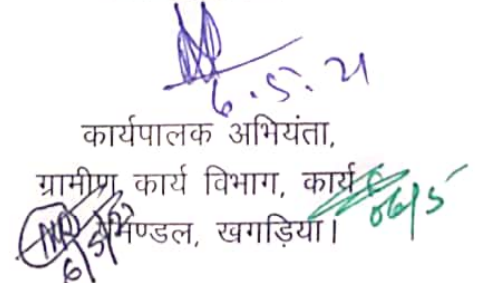 6.5.21
कार्यपालक अभियंता,
ग्रामीण कार्य विभाग, कार्य
06/5
मण्डल, खगड़िया।
6/5/2